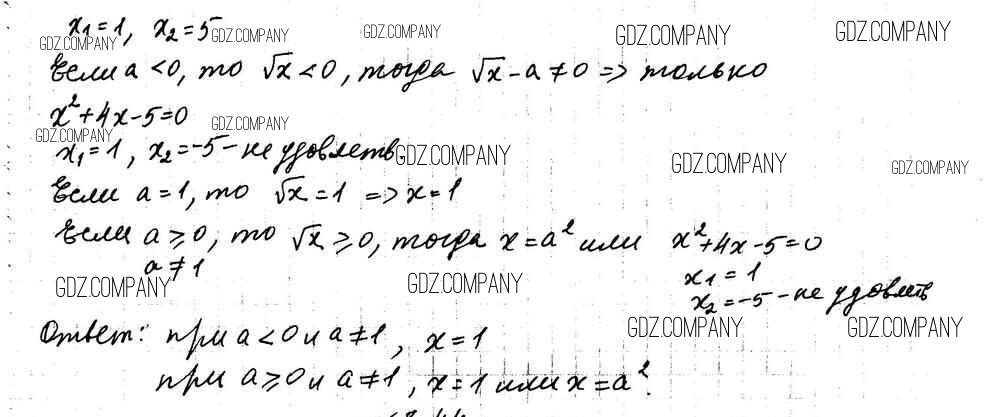 x₁ = 1, x₂ = 5
GDZ.COMPANY GDZ.COMPANY GDZ.COMPANY GDZ.COMPANY GDZ.COMPANY
Если a < 0, то √x < 0, тогда √x - a ≠ 0 => только
x² + 4x - 5 = 0
GDZ.COMPANY GDZ.COMPANY
x₁ = 1, x₂ = -5 - не удовлетв.
GDZ.COMPANY GDZ.COMPANY GDZ.COMPANY
Если a = 1, то √x = 1 => x = 1
Если a ≥ 0, то √x ≥ 0, тогда x = a² или x² + 4x - 5 = 0
a ≠ 1
x₁ = 1
GDZ.COMPANY GDZ.COMPANY
x₂ = -5 - не удовлетв
Ответ: при a < 0 и a ≠ 1, x = 1
GDZ.COMPANY GDZ.COMPANY
при a ≥ 0 и a ≠ 1, x = 1 или x = a².